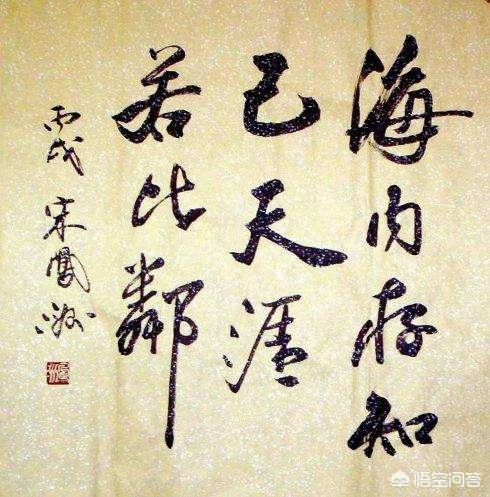 海内存知
己天涯
若比鄰
丙戌 宋鳳
悟空问答